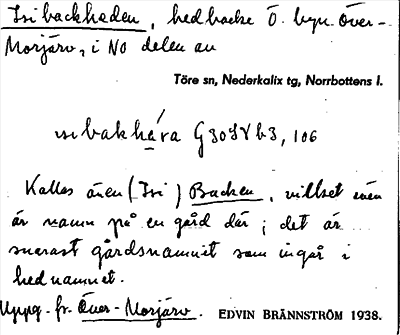 Isibackheden, hedbacke Ö. byn Över-
Morjärv, i NO delen av
Töre sn, Nederkalix tg, Norrbottens l.
G 30
Kallas även (Isi) Backen, vilket även
är namn på en gård där; det är
snarast gårdsnamnet som ingår i
hednamnet.
Uppg. fr. Över-Morjärv. EDVIN BRÄNNSTRÖM 1938.